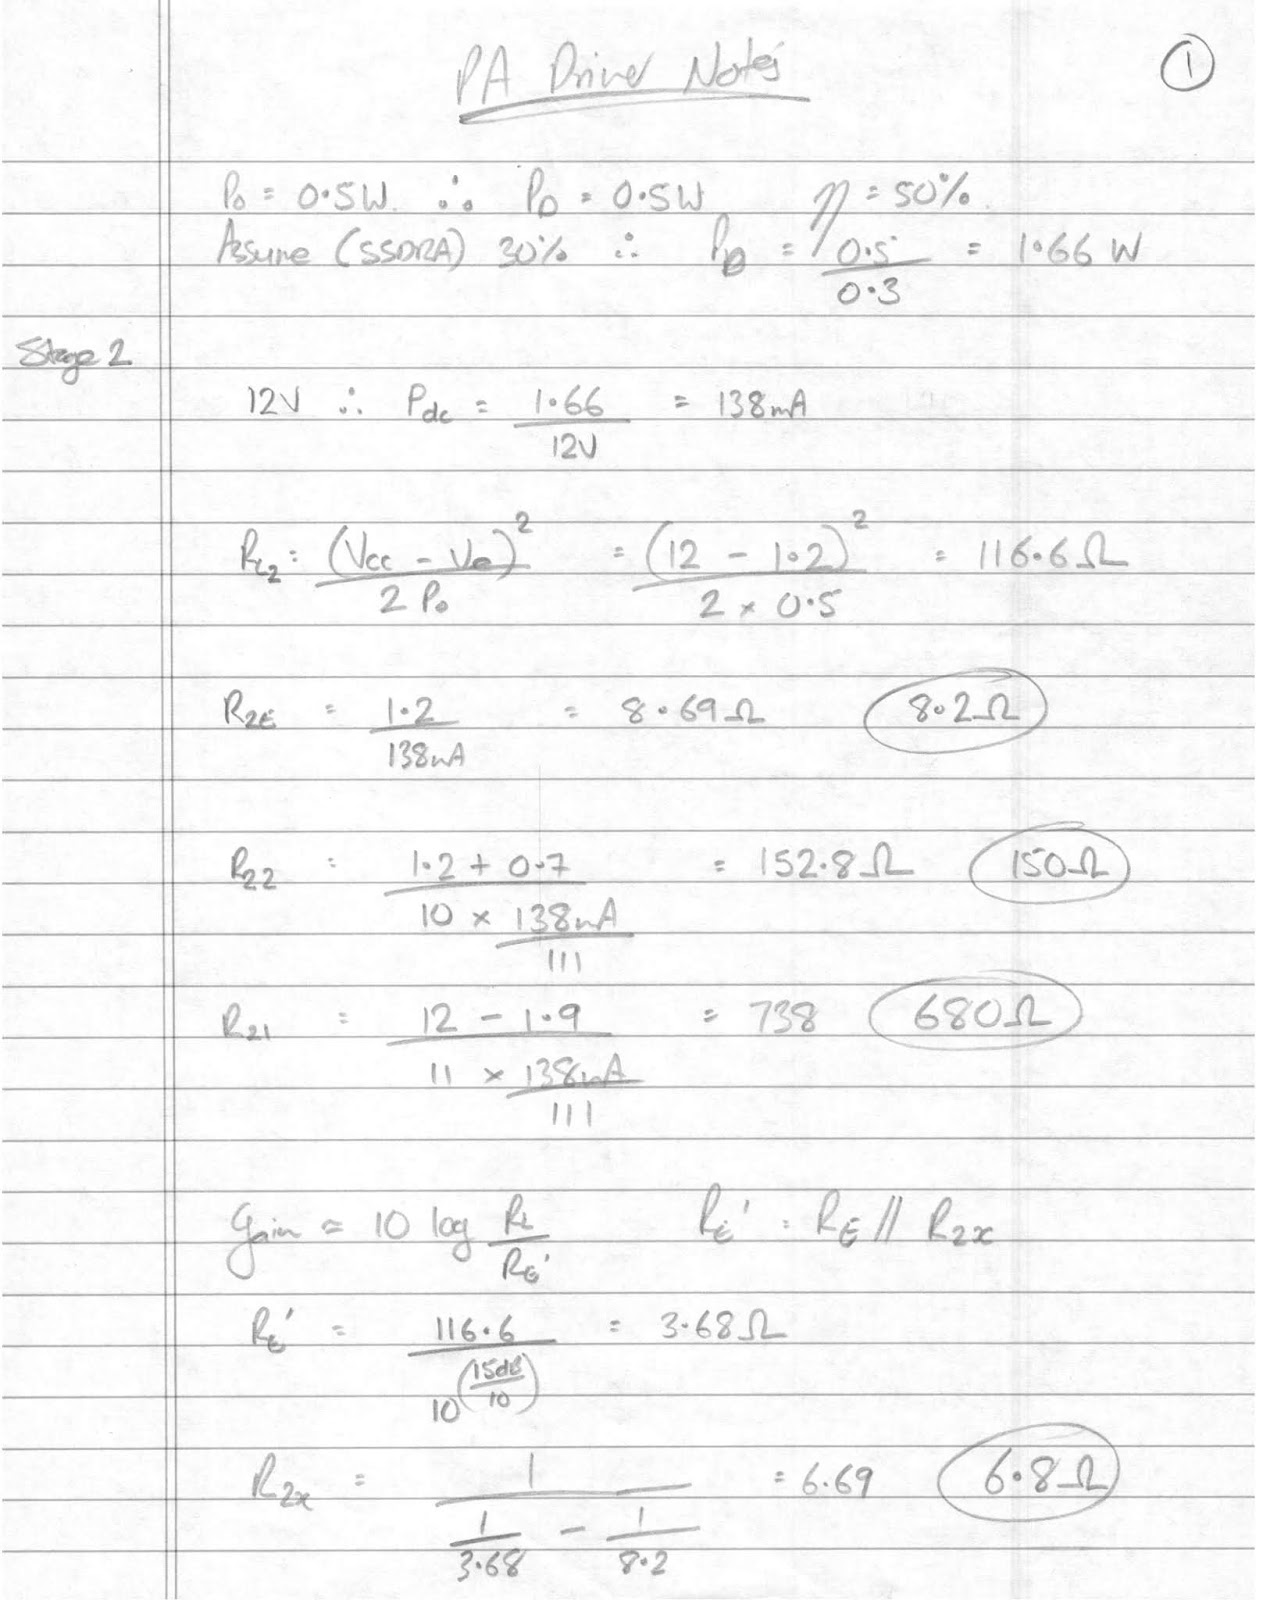 PA Driver Notes
1
Po = 0.5W ∴ PD = 0.5W η = 50%
Assume (SSDRA) 30% ∴ PD = 0.5 / 0.3 = 1.66 W
Stage 2
12V ∴ Pdc = 1.66 / 12V = 138mA
RL2 = (Vcc - Ve)² / 2 Po = (12 - 1.2)² / 2 × 0.5 = 116.6Ω
R2E = 1.2 / 138mA = 8.69Ω 8.2Ω
R22 = 1.2 + 0.7 / 10 × 138mA / 111 = 152.8Ω 150Ω
R21 = 12 - 1.9 / 11 × 138mA / 111 = 738 680Ω
Gain ≈ 10 log RL / RE' RE' = RE // R2x
RE' = 116.6 / 10^(15dB / 10) = 3.68Ω
R2x = 1 / 1 / 3.68 - 1 / 8.2 = 6.69 6.8Ω